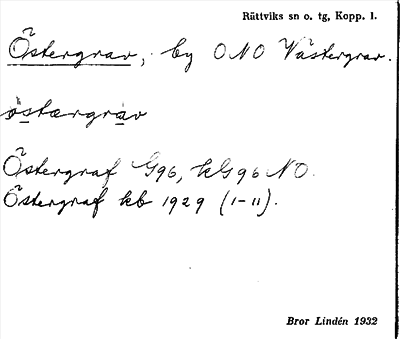 Rättviks sn o. tg, Kopp. l.
Östergrav, by ONO Västergrav.
östærgràv
Östergraf G96, kG96 NO.
Östergraf kb 1929 (1-11).
Bror Lindén 1932